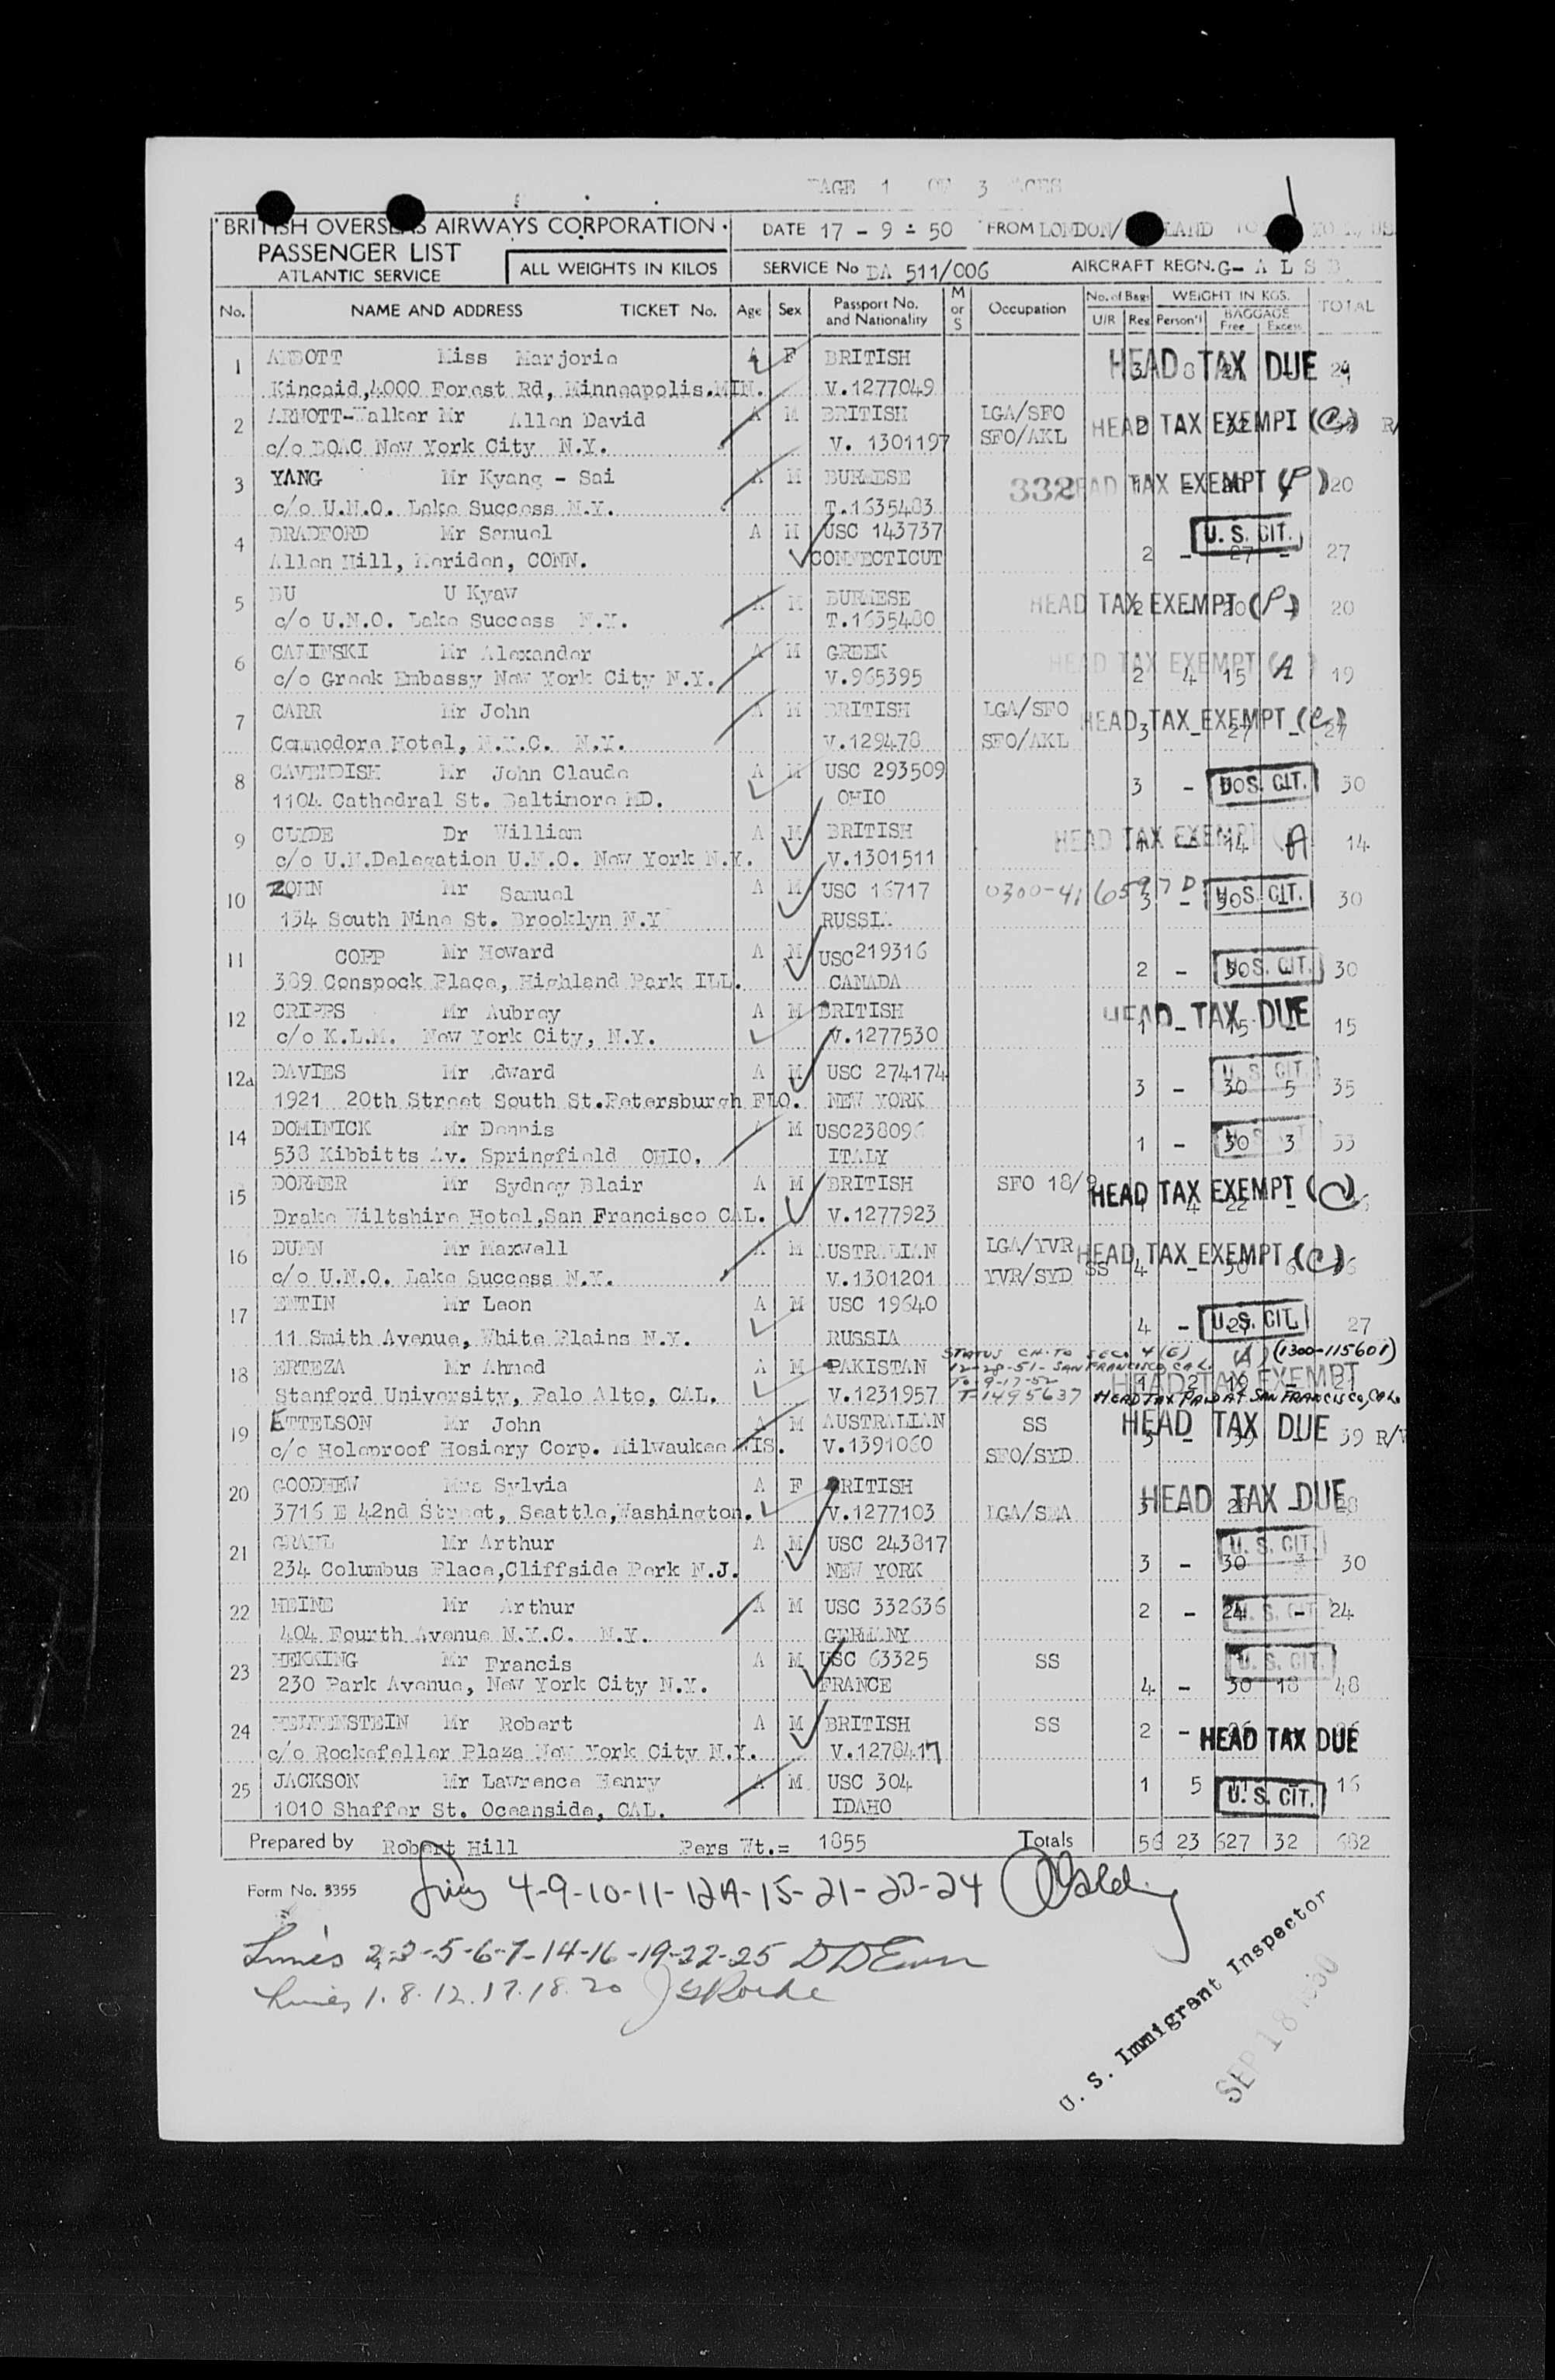 PAGE 1 OF 3 PAGES
BRITISH OVERSEAS AIRWAYS CORPORATION
PASSENGER LIST
ATLANTIC SERVICE
ALL WEIGHTS IN KILOS
DATE 17 - 9 - 50 FROM LONDON/
SERVICE No BA 511/006 AIRCRAFT REGN. G- A L S
No. NAME AND ADDRESS TICKET No. Age Sex Passport No. and Nationality M or S Occupation No. of Bags U/R Reg WEIGHT IN KGS. Person'l BAGGAGE Free Excess TOTAL
1 Miss Marjorie A F BRITISH HEAD TAX DUE
Kincaid,4000 Forest Rd, Minneapolis.MIN. V.1277049
2 ARNOTT-Walker Mr Allen David A M BRITISH LGA/SFO HEAD TAX EXEMPT (C) R/
c/o BOAC New York City N.Y. V. 1301197 SFO/AKL
3 YANG Mr Kyang - Sai A M BURMESE 332 HEAD TAX EXEMPT (P) 20
c/o U.N.O. Lake Success N.Y. T.1635483
4 BRADFORD Mr Samuel A M USC 143737 U. S. CIT.
Allen Hill, Meriden, CONN. CONNECTICUT 2 - 27 - 27
5 BU U Kyaw A M BURMESE HEAD TAX EXEMPT (P) 20
c/o U.N.O. Lake Success N.Y. T.1635480
6 CALINSKI Mr Alexander A M GREEK HEAD TAX EXEMPT (A)
c/o Greek Embassy New York City N.Y. V.965395 2 4 15 19
7 CARR Mr John A M BRITISH LGA/SFO HEAD TAX EXEMPT (C)
Commodore Hotel, N.Y.C. N.Y. V.129478 SFO/AKL 3 - 27 - 27
8 CAVENDISH Mr John Claude A M USC 293509 3 - U. S. CIT. 30
1104 Cathedral St. Baltimore MD. OHIO
9 CLYDE Dr William A M BRITISH HEAD TAX EXEMPT (A) 14
c/o U.N.Delegation U.N.O. New York N.Y. V.1301511
10 ZOHN Mr Samuel A M USC 16717 0300-416597 D 3 - 30 U. S. CIT. 30
134 South Nine St. Brooklyn N.Y RUSSIA
11 COPP Mr Howard A M USC219316 2 - 30 U. S. CIT. 30
389 Conspock Place, Highland Park ILL. CANADA
12 CRIPPS Mr Aubrey A M BRITISH HEAD TAX DUE 1 - 15 - 15
c/o K.L.M. New York City, N.Y. V.1277530
12a DAVIES Mr Edward A M USC 274174 U. S. CIT. 3 - 30 5 35
1921 20th Street South St.Petersburgh FLO. NEW YORK
14 DOMINICK Mr Dennis A M USC238096 1 - 30 3 33
538 Kibbitts Av. Springfield OHIO. ITALY
15 DORMER Mr Sydney Blair A M BRITISH SFO 18/9 HEAD TAX EXEMPT (C)
Drake Wiltshire Hotel,San Francisco CAL. V.1277923 1 4 22 -
16 DUNN Mr Maxwell A M AUSTRALIAN LGA/YVR HEAD TAX EXEMPT (C)
c/o U.N.O. Lake Success N.Y. V.1301201 YVR/SYD SS 4 - 30 6
17 ENTIN Mr Leon A M USC 19640
11 Smith Avenue, White Plains N.Y. RUSSIA 4 - 27 U. S. CIT. 27
STATUS CH. TO SEC. 4 (E) (A) (1300-115601)
18 ERTEZA Mr Ahmed A M PAKISTAN 12-28-51- SAN FRANCISCO CAL. HEAD TAX EXEMPT
TO 9-17-52
Stanford University, Palo Alto, CAL. V.1231957 T-1495637 HEAD TAX PAID AT SAN FRANCISCO, CAL.
19 ETTELSON Mr John A M AUSTRALIAN SS HEAD TAX DUE 39
c/o Holeproof Hosiery Corp. Milwaukee WIS. V.1391060 SFO/SYD
20 GOODHEW Mrs Sylvia A F BRITISH HEAD TAX DUE
3716 E 42nd Street, Seattle,Washington. V.1277103 LGA/SEA
21 Mr Arthur A M USC 243817 U. S. CIT.
234 Columbus Place,Cliffside Park N.J. NEW YORK 3 - 30 30
22 HEINE Mr Arthur A M USC 332636 2 - 24 U. S. CIT. - 24
404 Fourth Avenue N.Y.C. N.Y. GERMANY
23 HEKKING Mr Francis A M USC 63325 SS U. S. CIT.
230 Park Avenue, New York City N.Y. FRANCE 4 - 30 18 48
24 HELFENSTEIN Mr Robert A M BRITISH SS 2 - HEAD TAX DUE
c/o Rockefeller Plaza New York City N.Y. V.1278417
25 JACKSON Mr Lawrence Henry A M USC 304 1 5 U. S. CIT. 16
1010 Shaffer St. Oceanside, CAL. IDAHO
Prepared by Robert Hill Pers Wt.= 1855 Totals 56 23 627 32 682
Form No. 3355
4-9-10-11-12A-15-21-23-24
Lines 2-3-5-6-7-14-16-19-22-25
Lines 1.8.12.17.18.20
U. S. Immigrant Inspector
SEP 18 1950